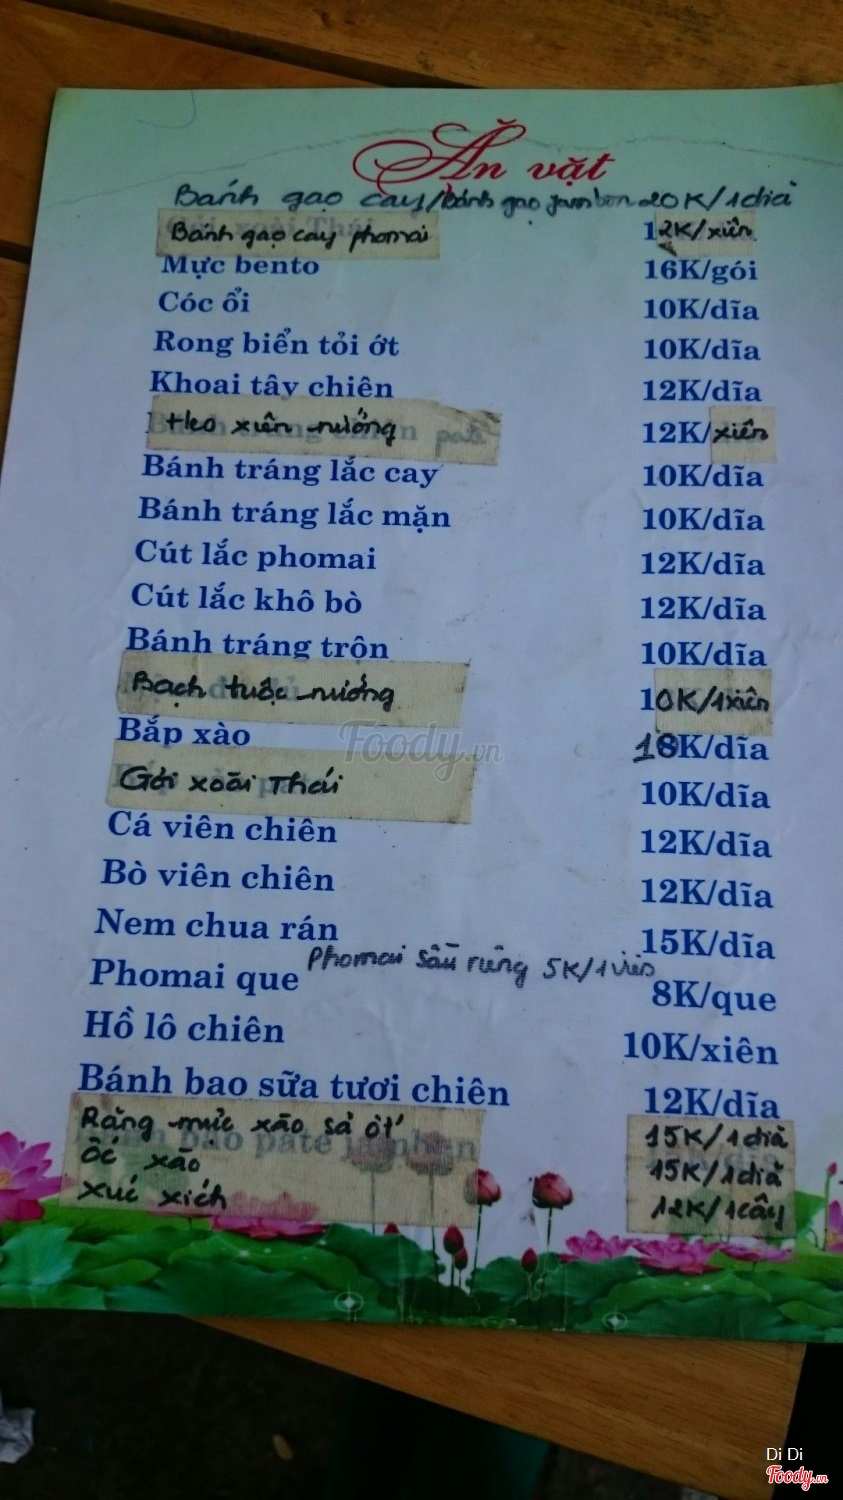 Ăn vặt
Bánh gạo cay/Bánh gạo jambon 20K/1dĩa
Bánh gạo cay phomai 12K/xiên
Mực bento 16K/gói
Cóc ổi 10K/dĩa
Rong biển tỏi ớt 10K/dĩa
Khoai tây chiên 12K/dĩa
Heo xiên nướng 12K/xiên
Bánh tráng lắc cay 10K/dĩa
Bánh tráng lắc mặn 10K/dĩa
Cút lắc phomai 12K/dĩa
Cút lắc khô bò 12K/dĩa
Bánh tráng trộn 10K/dĩa
Bạch tuộc nướng 10K/1xiên
Foody.vn
Bắp xào 18K/dĩa
Gỏi xoài Thái 10K/dĩa
Cá viên chiên 12K/dĩa
Bò viên chiên 12K/dĩa
Nem chua rán 15K/dĩa
Phomai sầu riêng 5K/1viên
Phomai que 8K/que
Hồ lô chiên 10K/xiên
Bánh bao sữa tươi chiên 12K/dĩa
Răng mực xào sả ớt 15K/1dĩa
Ốc xào 15K/1dĩa
xúc xích 12K/1cây
Di Di
Foody.vn